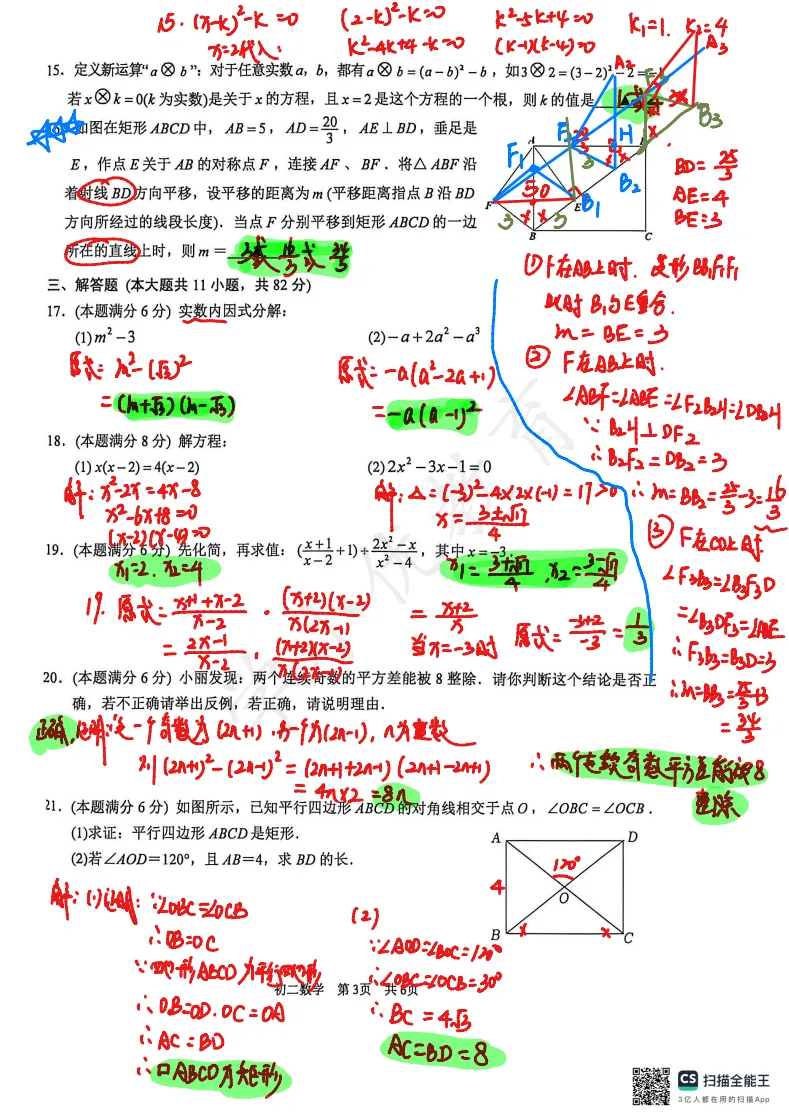 15. (x-k)²-k=0 (2-k)²-k=0 k²-5k+4=0 k₁=1. k₂=4
x=2代入: k²-4k+4-k=0 (k-1)(k-4)=0
15．定义新运算“a⊗b”：对于任意实数a，b，都有a⊗b=(a-b)²-b，如3⊗2=(3-2)²-2=-1
若x⊗k=0(k为实数)是关于x的方程，且x=2是这个方程的一个根，则k的值是 ▲
如图在矩形ABCD中，AB=5，AD=20/3，AE⊥BD，垂足是
E，作点E关于AB的对称点F，连接AF、BF．将△ABF沿
着射线BD方向平移，设平移的距离为m(平移距离指点B沿BD
方向所经过的线段长度)．当点F分别平移到矩形ABCD的一边
所在的直线上时，则m= 3或16/3或34/3
BD=25/3
AE=4
BE=3
①F在AB上时．菱形BB₁F₁F
此时B₁与E重合．
m=BE=3
②F在AD上时．
∠ABF=∠ABE=∠F₂B₂H=∠DB₂H
∵B₂H⊥DF₂
∴B₂F₂=DB₂=3
∴m=BB₂=25/3-3=16/3
③F在CD上时
∠F₃B₃=∠B₃F₃D
=∠B₃DF₃=∠ABE
∴F₃B₃=B₃D=3
∴m=BB₃=25/3+3
=34/3
三、解答题 (本大题共11小题，共82分)
17．(本题满分6分) 实数内因式分解：
(1)m²-3 (2)-a+2a²-a³
原式=m²-(√3)² 原式=-a(a²-2a+1)
=(m+√3)(m-√3) =-a(a-1)²
18．(本题满分8分) 解方程：
(1) x(x-2)=4(x-2) (2) 2x²-3x-1=0
解：x²-2x=4x-8 解：△=(-3)²-4×2×(-1)=17>0
x²-6x+8=0 x=(3±√17)/4
(x-2)(x-4)=0
19．(本题满分6分) 先化简，再求值：((x+1)/(x-2)+1)÷(2x²-x)/(x²-4)，其中x=-3．
x₁=2．x₂=4 x₁=(3+√17)/4，x₂=(3-√17)/4
19．原式=(x+1+x-2)/(x-2)·(x+2)(x-2)/x(2x-1) =(x+2)/x 原式=(-3+2)/(-3)=1/3
=(2x-1)/(x-2)·(x+2)(x-2)/x(2x-1) 当x=-3时
20．(本题满分6分) 小丽发现：两个连续奇数的平方差能被8整除．请你判断这个结论是否正
确，若不正确请举出反例，若正确，请说明理由．
正确．证明：设一个奇数为(2n+1)，另一个为(2n-1)，n为整数
则(2n+1)²-(2n-1)²=(2n+1+2n-1)(2n+1-2n+1)
=4n×2=8n
∴两个连续奇数平方差能被8
整除
21．(本题满分6分) 如图所示，已知平行四边形ABCD的对角线相交于点O，∠OBC=∠OCB．
(1)求证：平行四边形ABCD是矩形．
(2)若∠AOD=120°，且AB=4，求BD的长．
A D
120°
4 O
B C
解：(1)证明：∵∠OBC=∠OCB
∴OB=OC
∵四边形ABCD为平行四边形
∴OB=OD．OC=OA
∴AC=BD
∴□ABCD为矩形
(2)
∵∠AOD=∠BOC=120°
∴∠OBC=∠OCB=30°
∴BC=4√3
AC=BD=8
初二数学 第3页 共6页
CS 扫描全能王
3亿人都在用的扫描App